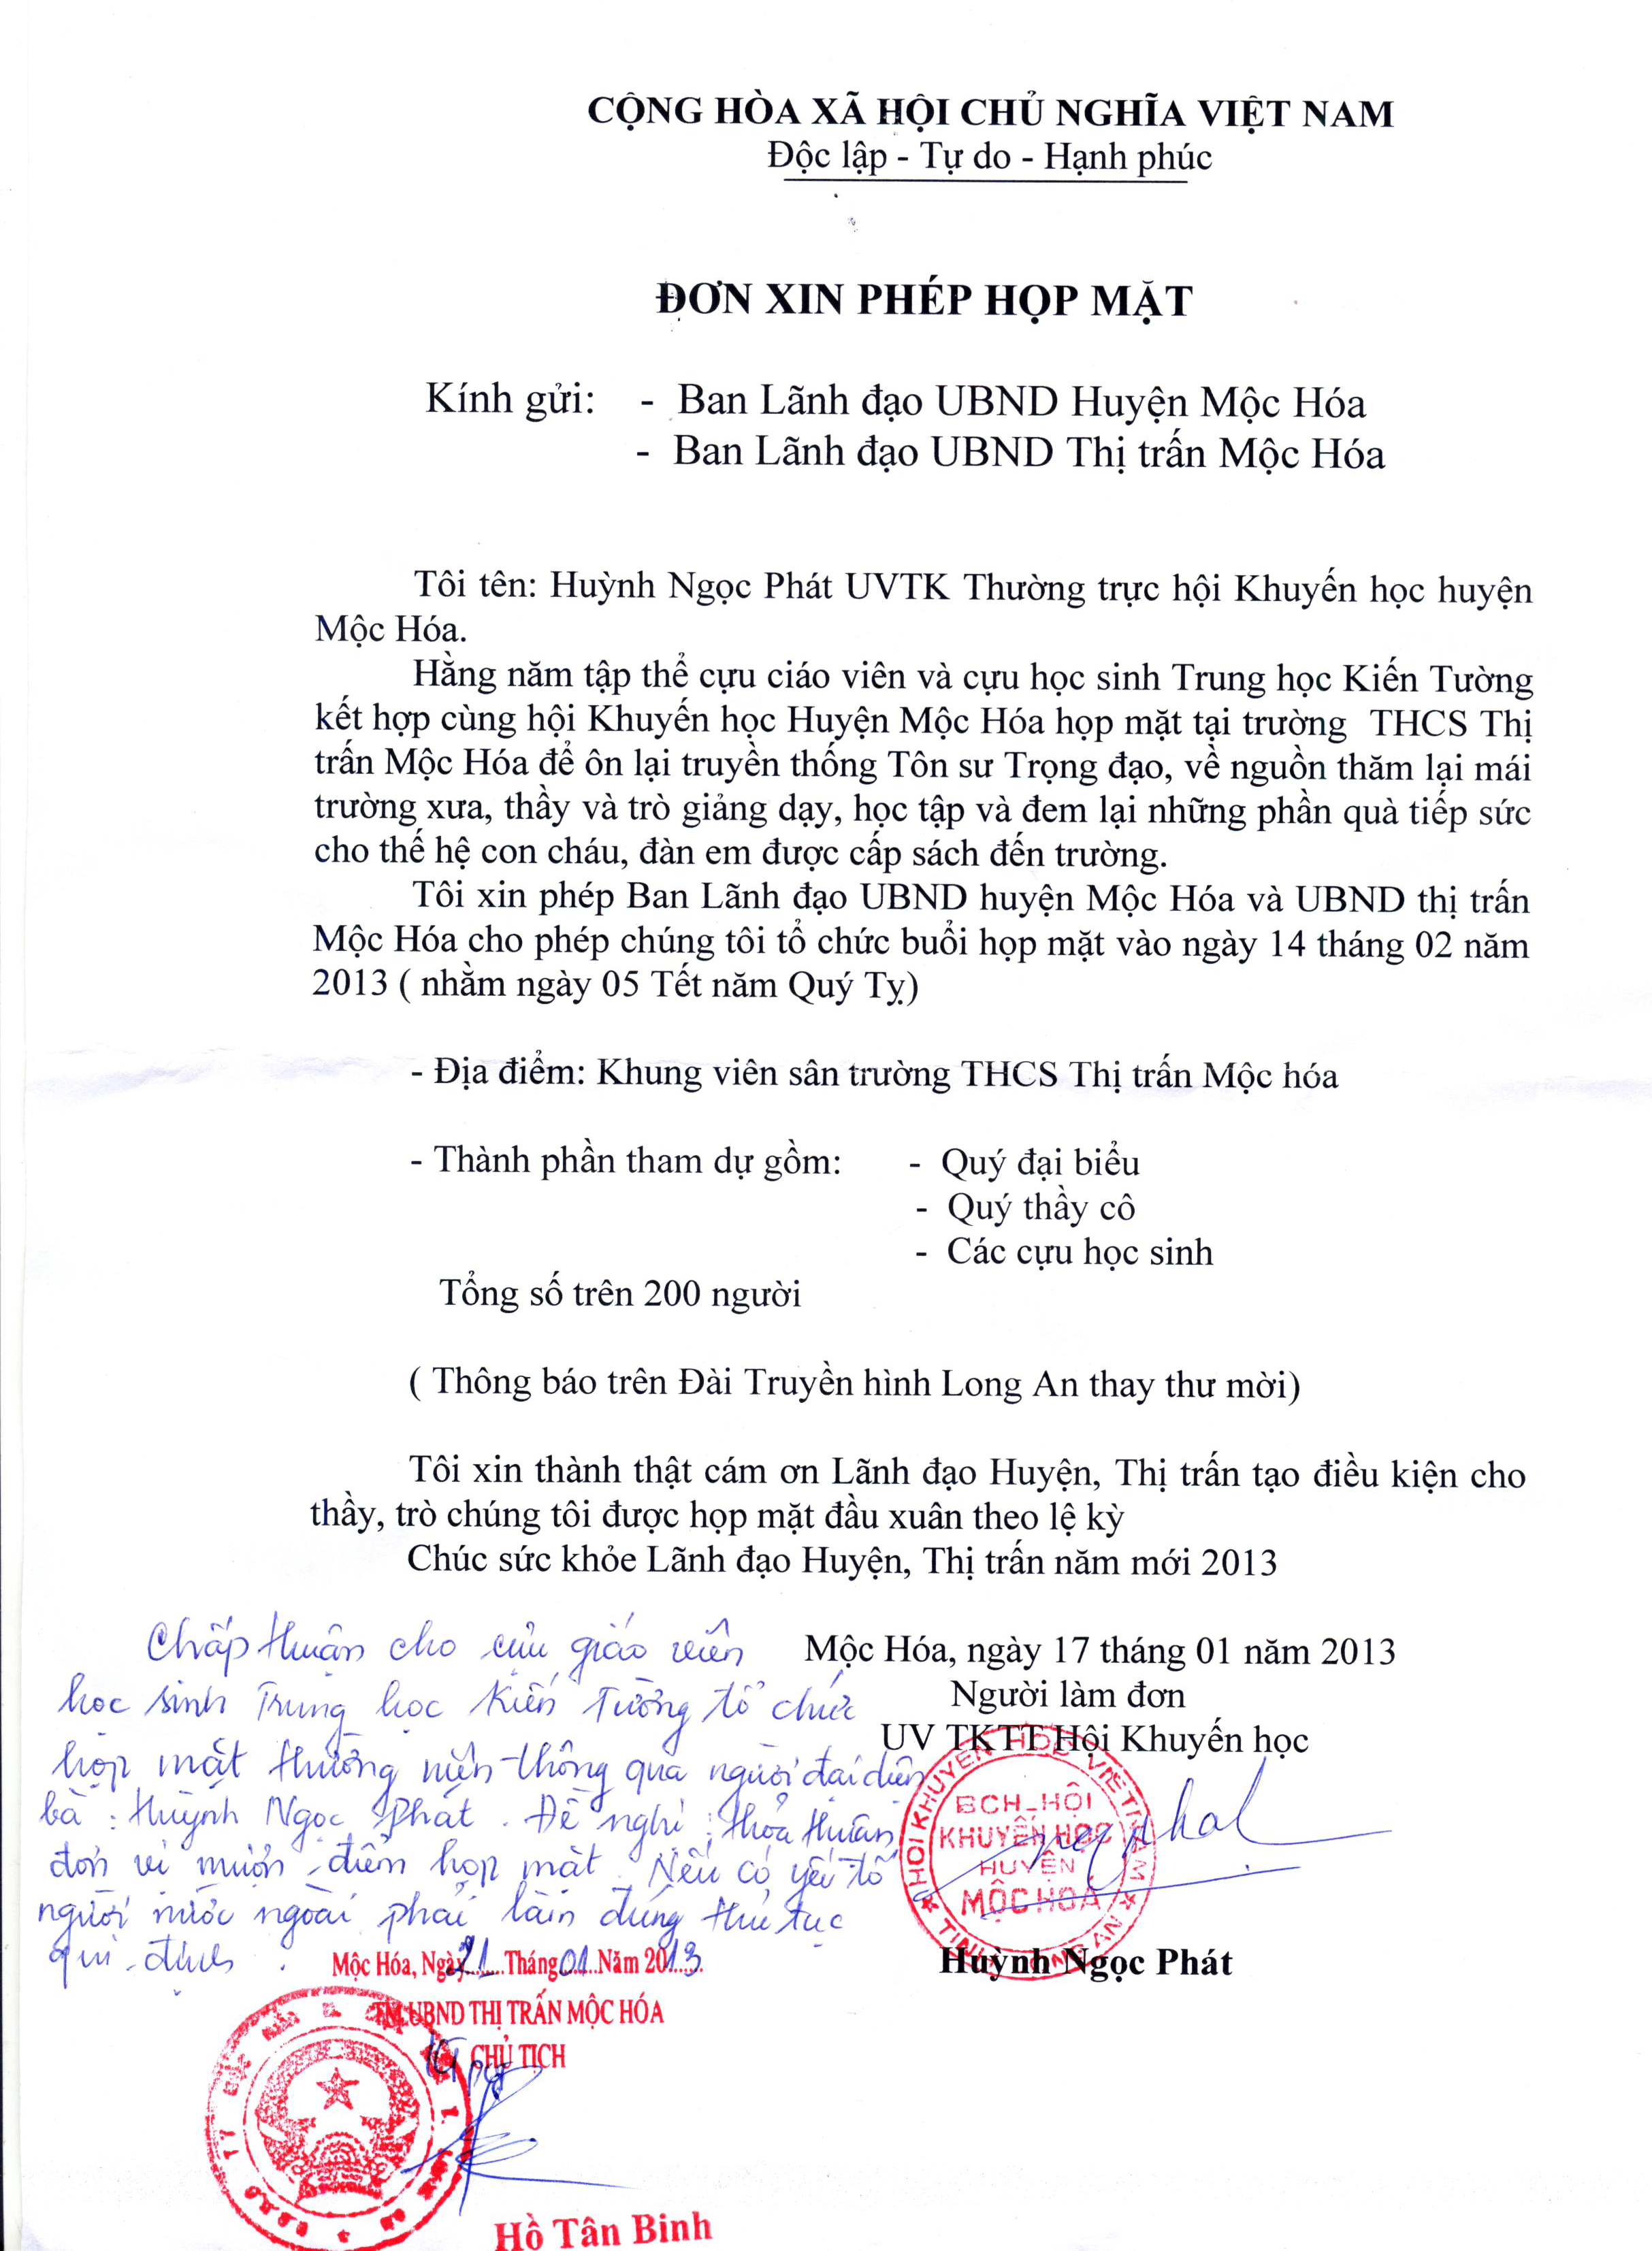 CỘNG HÒA XÃ HỘI CHỦ NGHĨA VIỆT NAM
Độc lập - Tự do - Hạnh phúc
ĐƠN XIN PHÉP HỌP MẶT
Kính gửi: - Ban Lãnh đạo UBND Huyện Mộc Hóa
- Ban Lãnh đạo UBND Thị trấn Mộc Hóa
Tôi tên: Huỳnh Ngọc Phát UVTK Thường trực hội Khuyến học huyện
Mộc Hóa.
Hằng năm tập thể cựu ciáo viên và cựu học sinh Trung học Kiến Tường
kết hợp cùng hội Khuyến học Huyện Mộc Hóa họp mặt tại trường THCS Thị
trấn Mộc Hóa để ôn lại truyền thống Tôn sư Trọng đạo, về nguồn thăm lại mái
trường xưa, thầy và trò giảng dạy, học tập và đem lại những phần quà tiếp sức
cho thế hệ con cháu, đàn em được cấp sách đến trường.
Tôi xin phép Ban Lãnh đạo UBND huyện Mộc Hóa và UBND thị trấn
Mộc Hóa cho phép chúng tôi tổ chức buổi họp mặt vào ngày 14 tháng 02 năm
2013 ( nhằm ngày 05 Tết năm Quý Tỵ)
- Địa điểm: Khung viên sân trường THCS Thị trấn Mộc hóa
- Thành phần tham dự gồm: - Quý đại biểu
- Quý thầy cô
- Các cựu học sinh
Tổng số trên 200 người
( Thông báo trên Đài Truyền hình Long An thay thư mời)
Tôi xin thành thật cám ơn Lãnh đạo Huyện, Thị trấn tạo điều kiện cho
thầy, trò chúng tôi được họp mặt đầu xuân theo lệ kỳ
Chúc sức khỏe Lãnh đạo Huyện, Thị trấn năm mới 2013
Mộc Hóa, ngày 17 tháng 01 năm 2013
Người làm đơn
UV TKTT Hội Khuyến học
HỘI KHUYẾN HỌC VIỆT NAM
TỈNH LONG AN
BCH-HỘI
KHUYẾN HỌC
HUYỆN
MỘC HOÁ
Huỳnh Ngọc Phát
Chấp thuận cho cựu giáo viên
học sinh Trung học Kiến Tường tổ chức
họp mặt thường niên thông qua người đại diện
bà : Huỳnh Ngọc Phát . Đề nghị : thỏa thuận
đơn vị mượn điểm họp mặt. Nếu có yếu tố
người nước ngoài phải làm đúng thủ tục
qui định .
Mộc Hóa, Ngày 21 Tháng 01 Năm 2013
TM.UBND THỊ TRẤN MỘC HÓA
CHỦ TỊCH
Hồ Tân Binh